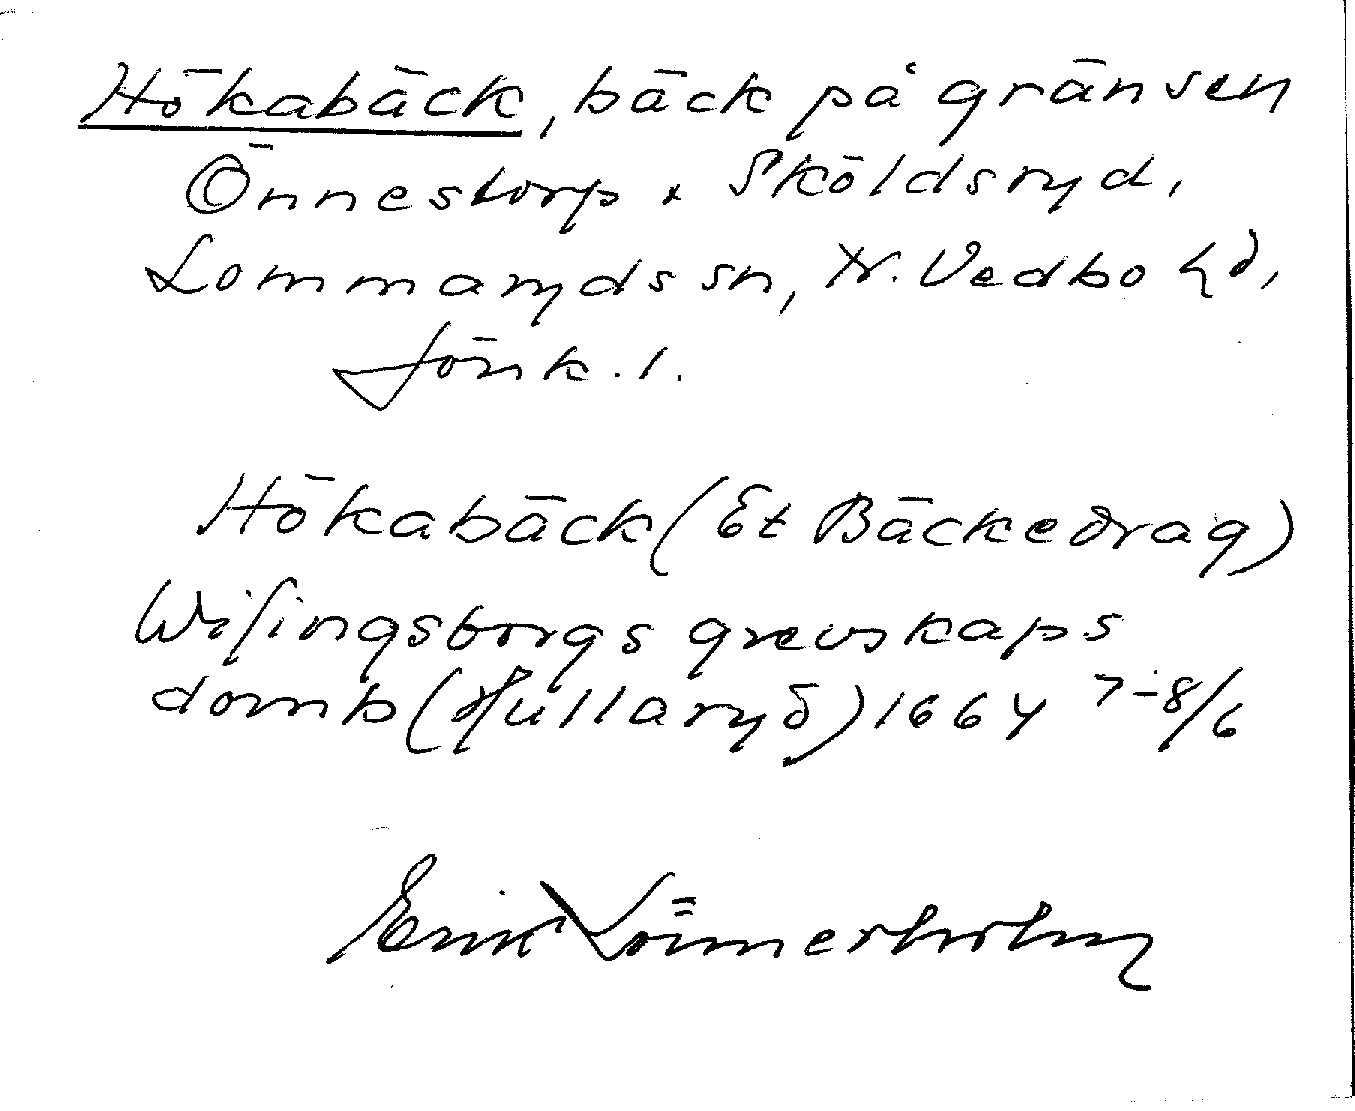 Hökabäck, bäck på gränsen
Önnestorp x Sköldsryd,
Lommaryds sn, N. Vedbo hd,
Jönk. l.
Hökabäck (Et Bäckedrag)
Wisingsborgs grevskaps
domb (Hullaryd) 1664 7-8/6
Erik Lönnerholm